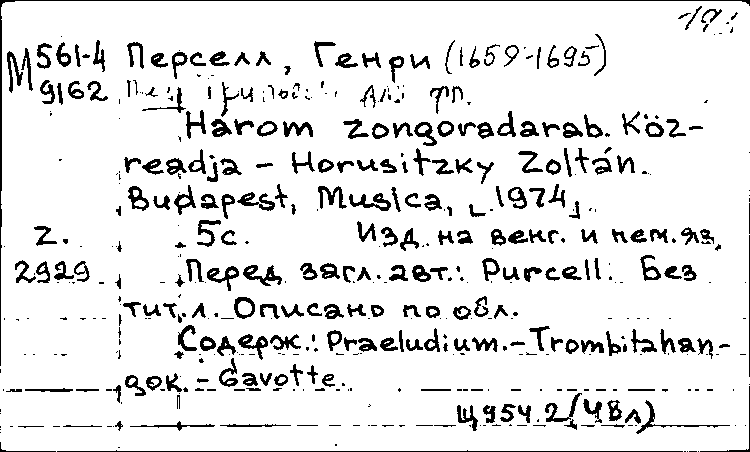 М 561-4 Перселл, Генри (1659-1695)
9162 для фп.
Három zongoradarab. Köz-
readja - Horusitzky Zoltán.
Budapest, Musica, [1974].
Z. 5с. Изд. на венг. и нем. яз.
2929 Перед загл. авт.: Purcell. Без
тит. л. Описано по обл.
Содерж.: Praeludium. - Trombitahan-
gok. - Gavotte.
Щ954.2(4Вл)